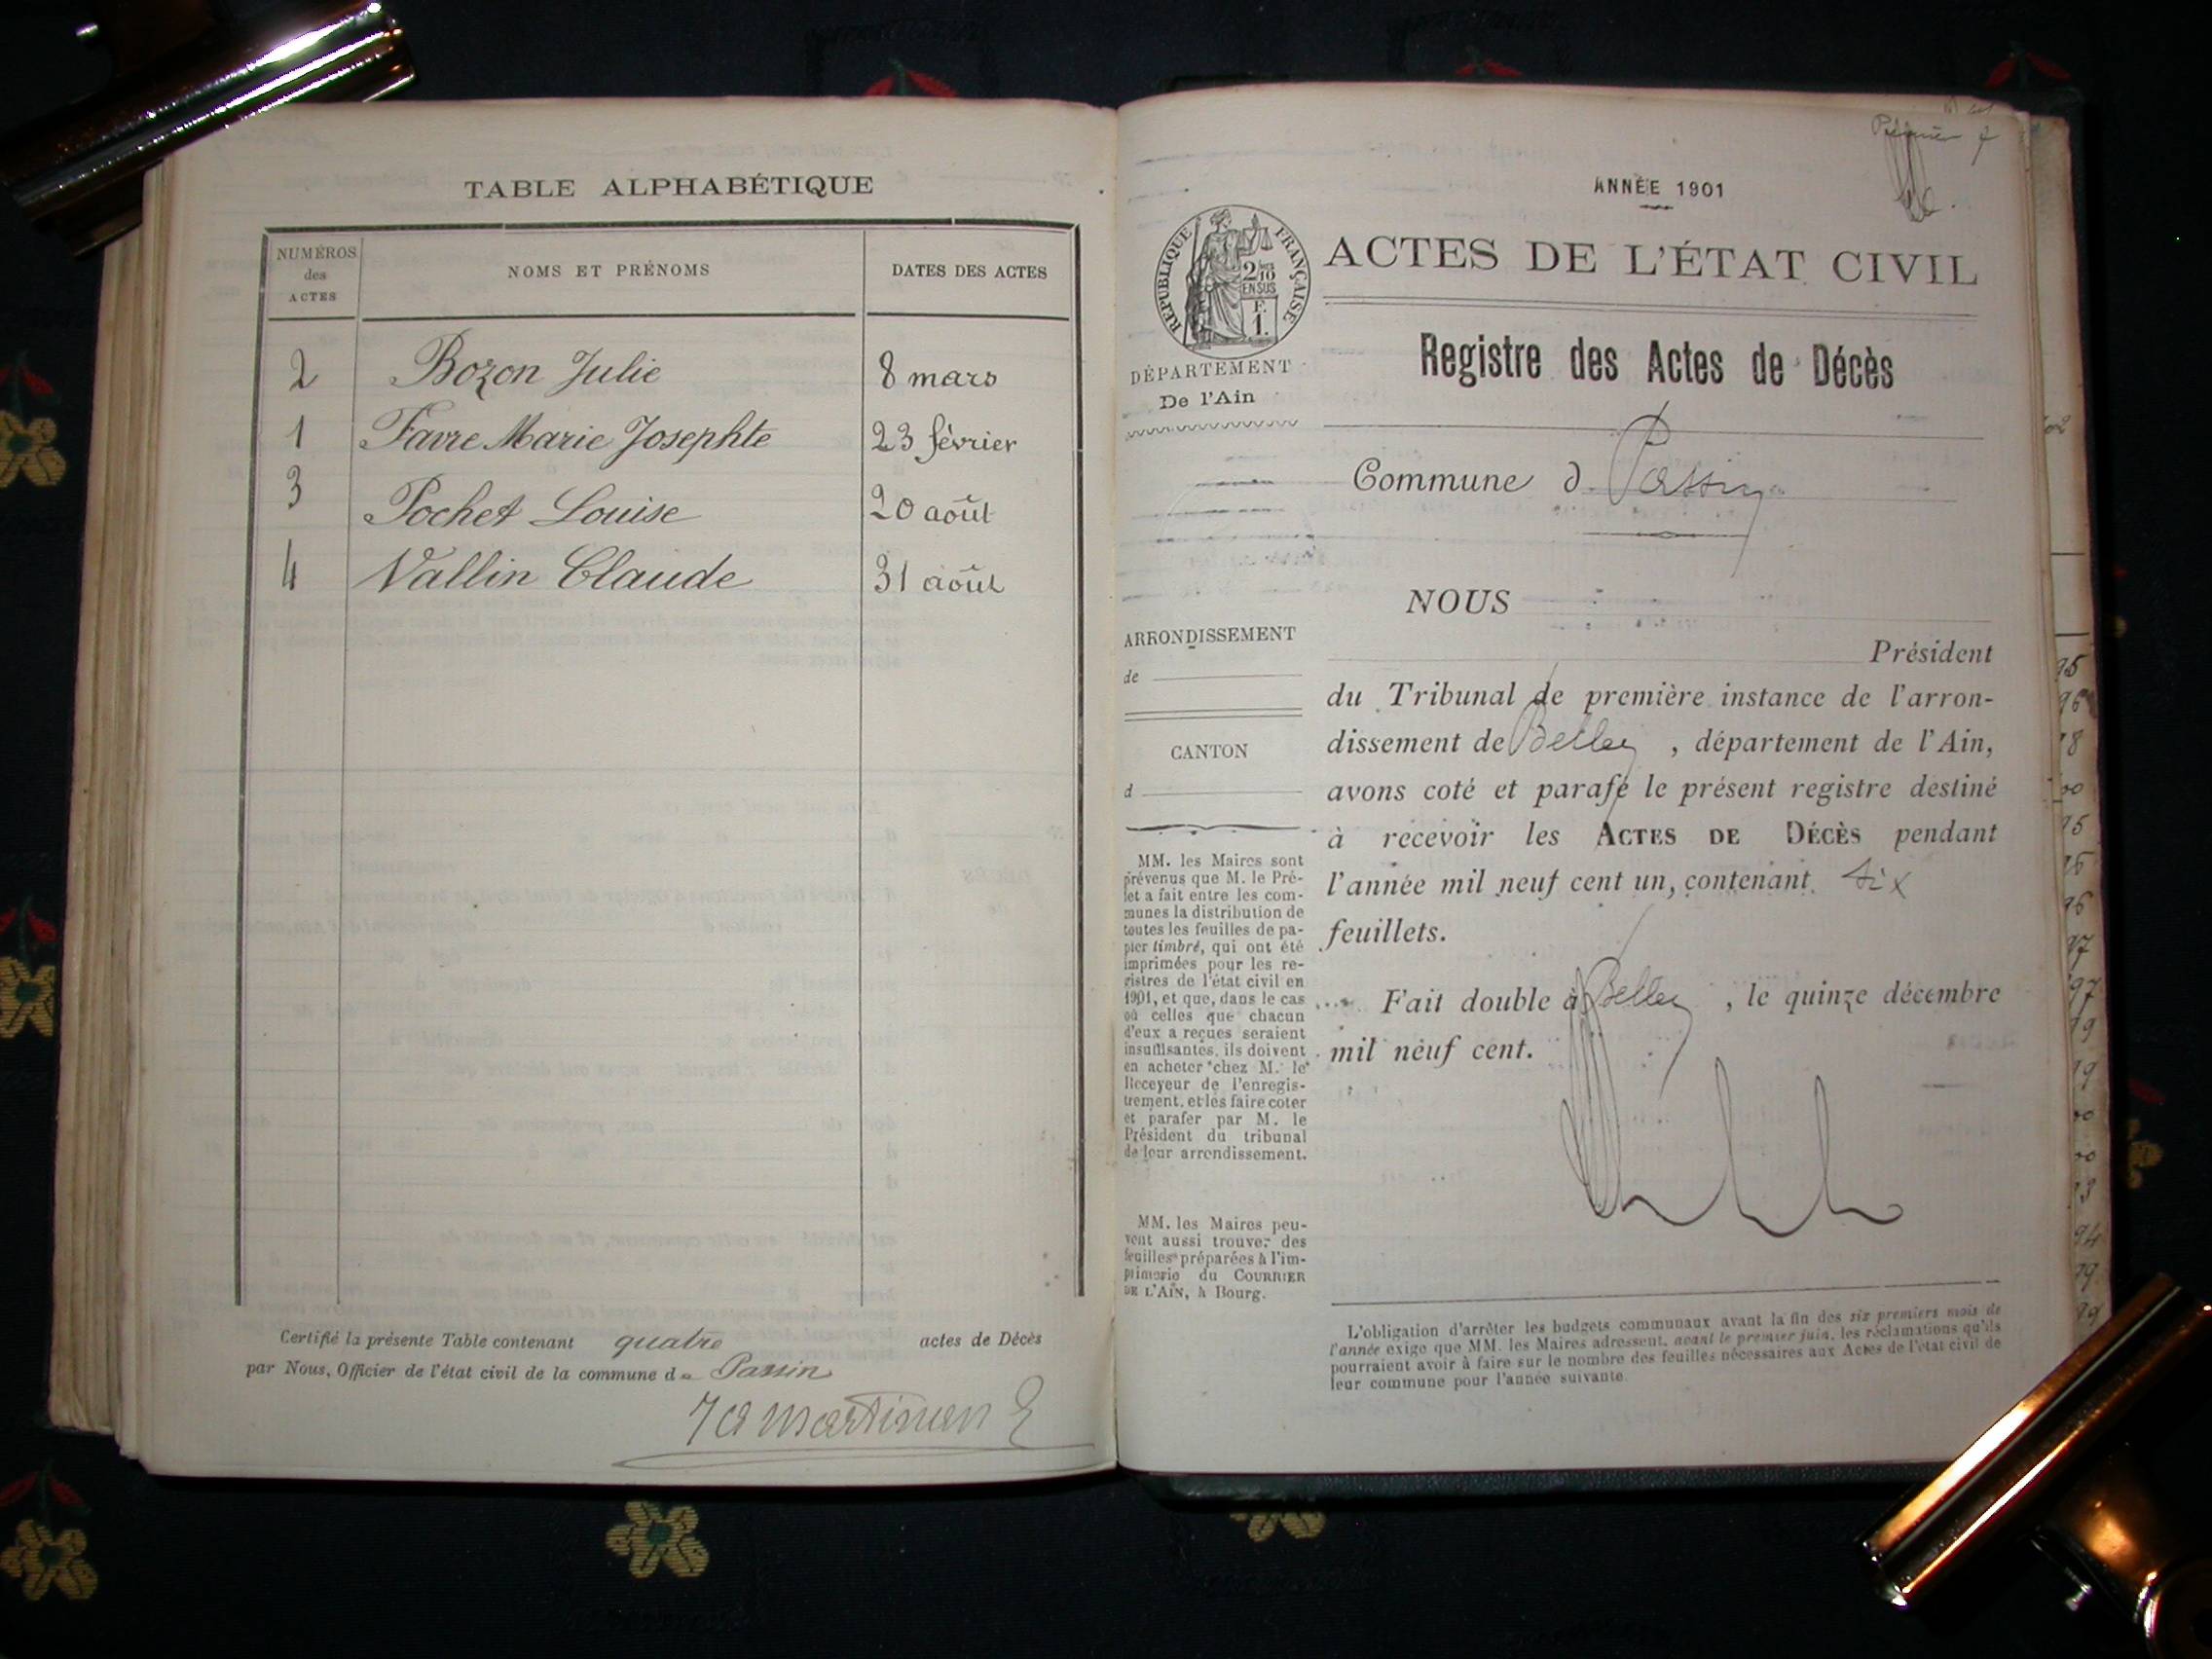 TABLE ALPHABÉTIQUE
NUMÉROS des ACTES
NOMS ET PRÉNOMS
DATES DES ACTES
2 Bozon Julie 8 mars
1 Favre Marie Josephte 23 février
3 Pochet Louise 20 août
4 Vallin Claude 31 août
Certifié la présente Table contenant quatre actes de Décès
par Nous, Officier de l'état civil de la commune de Passin
Premier
ANNÉE 1901
RÉPUBLIQUE FRANÇAISE
2/10
EN SUS
F.
1.
ACTES DE L'ÉTAT CIVIL
DÉPARTEMENT
De l'Ain
Registre des Actes de Décès
Commune d Passin
ARRONDISSEMENT
de
CANTON
d
MM. les Maires sont
prévenus que M. le Pré-
fet a fait entre les com-
munes la distribution de
toutes les feuilles de pa-
pier timbré, qui ont été
imprimées pour les re-
gistres de l'état civil en
1901, et que, dans le cas
où celles que chacun
d'eux a reçues seraient
insuffisantes, ils doivent
en acheter chez M. le
Receveur de l'enregis-
trement, et les faire coter
et parafer par M. le
Président du tribunal
de leur arrondissement.
MM. les Maires peu-
vent aussi trouver des
feuilles préparées à l'im-
primerie du COURRIER
DE L'AIN, à Bourg.
NOUS
Président
du Tribunal de première instance de l'arron-
dissement de Belley , département de l'Ain,
avons coté et parafé le présent registre destiné
à recevoir les ACTES DE DÉCÈS pendant
l'année mil neuf cent un, contenant six
feuillets.
Fait double à Belley , le quinze décembre
mil neuf cent.
L'obligation d'arrêter les budgets communaux avant la fin des six premiers mois de
l'année exige que MM. les Maires adressent, avant le premier juin, les réclamations qu'ils
pourraient avoir à faire sur le nombre des feuilles nécessaires aux Actes de l'état civil de
leur commune pour l'année suivante.